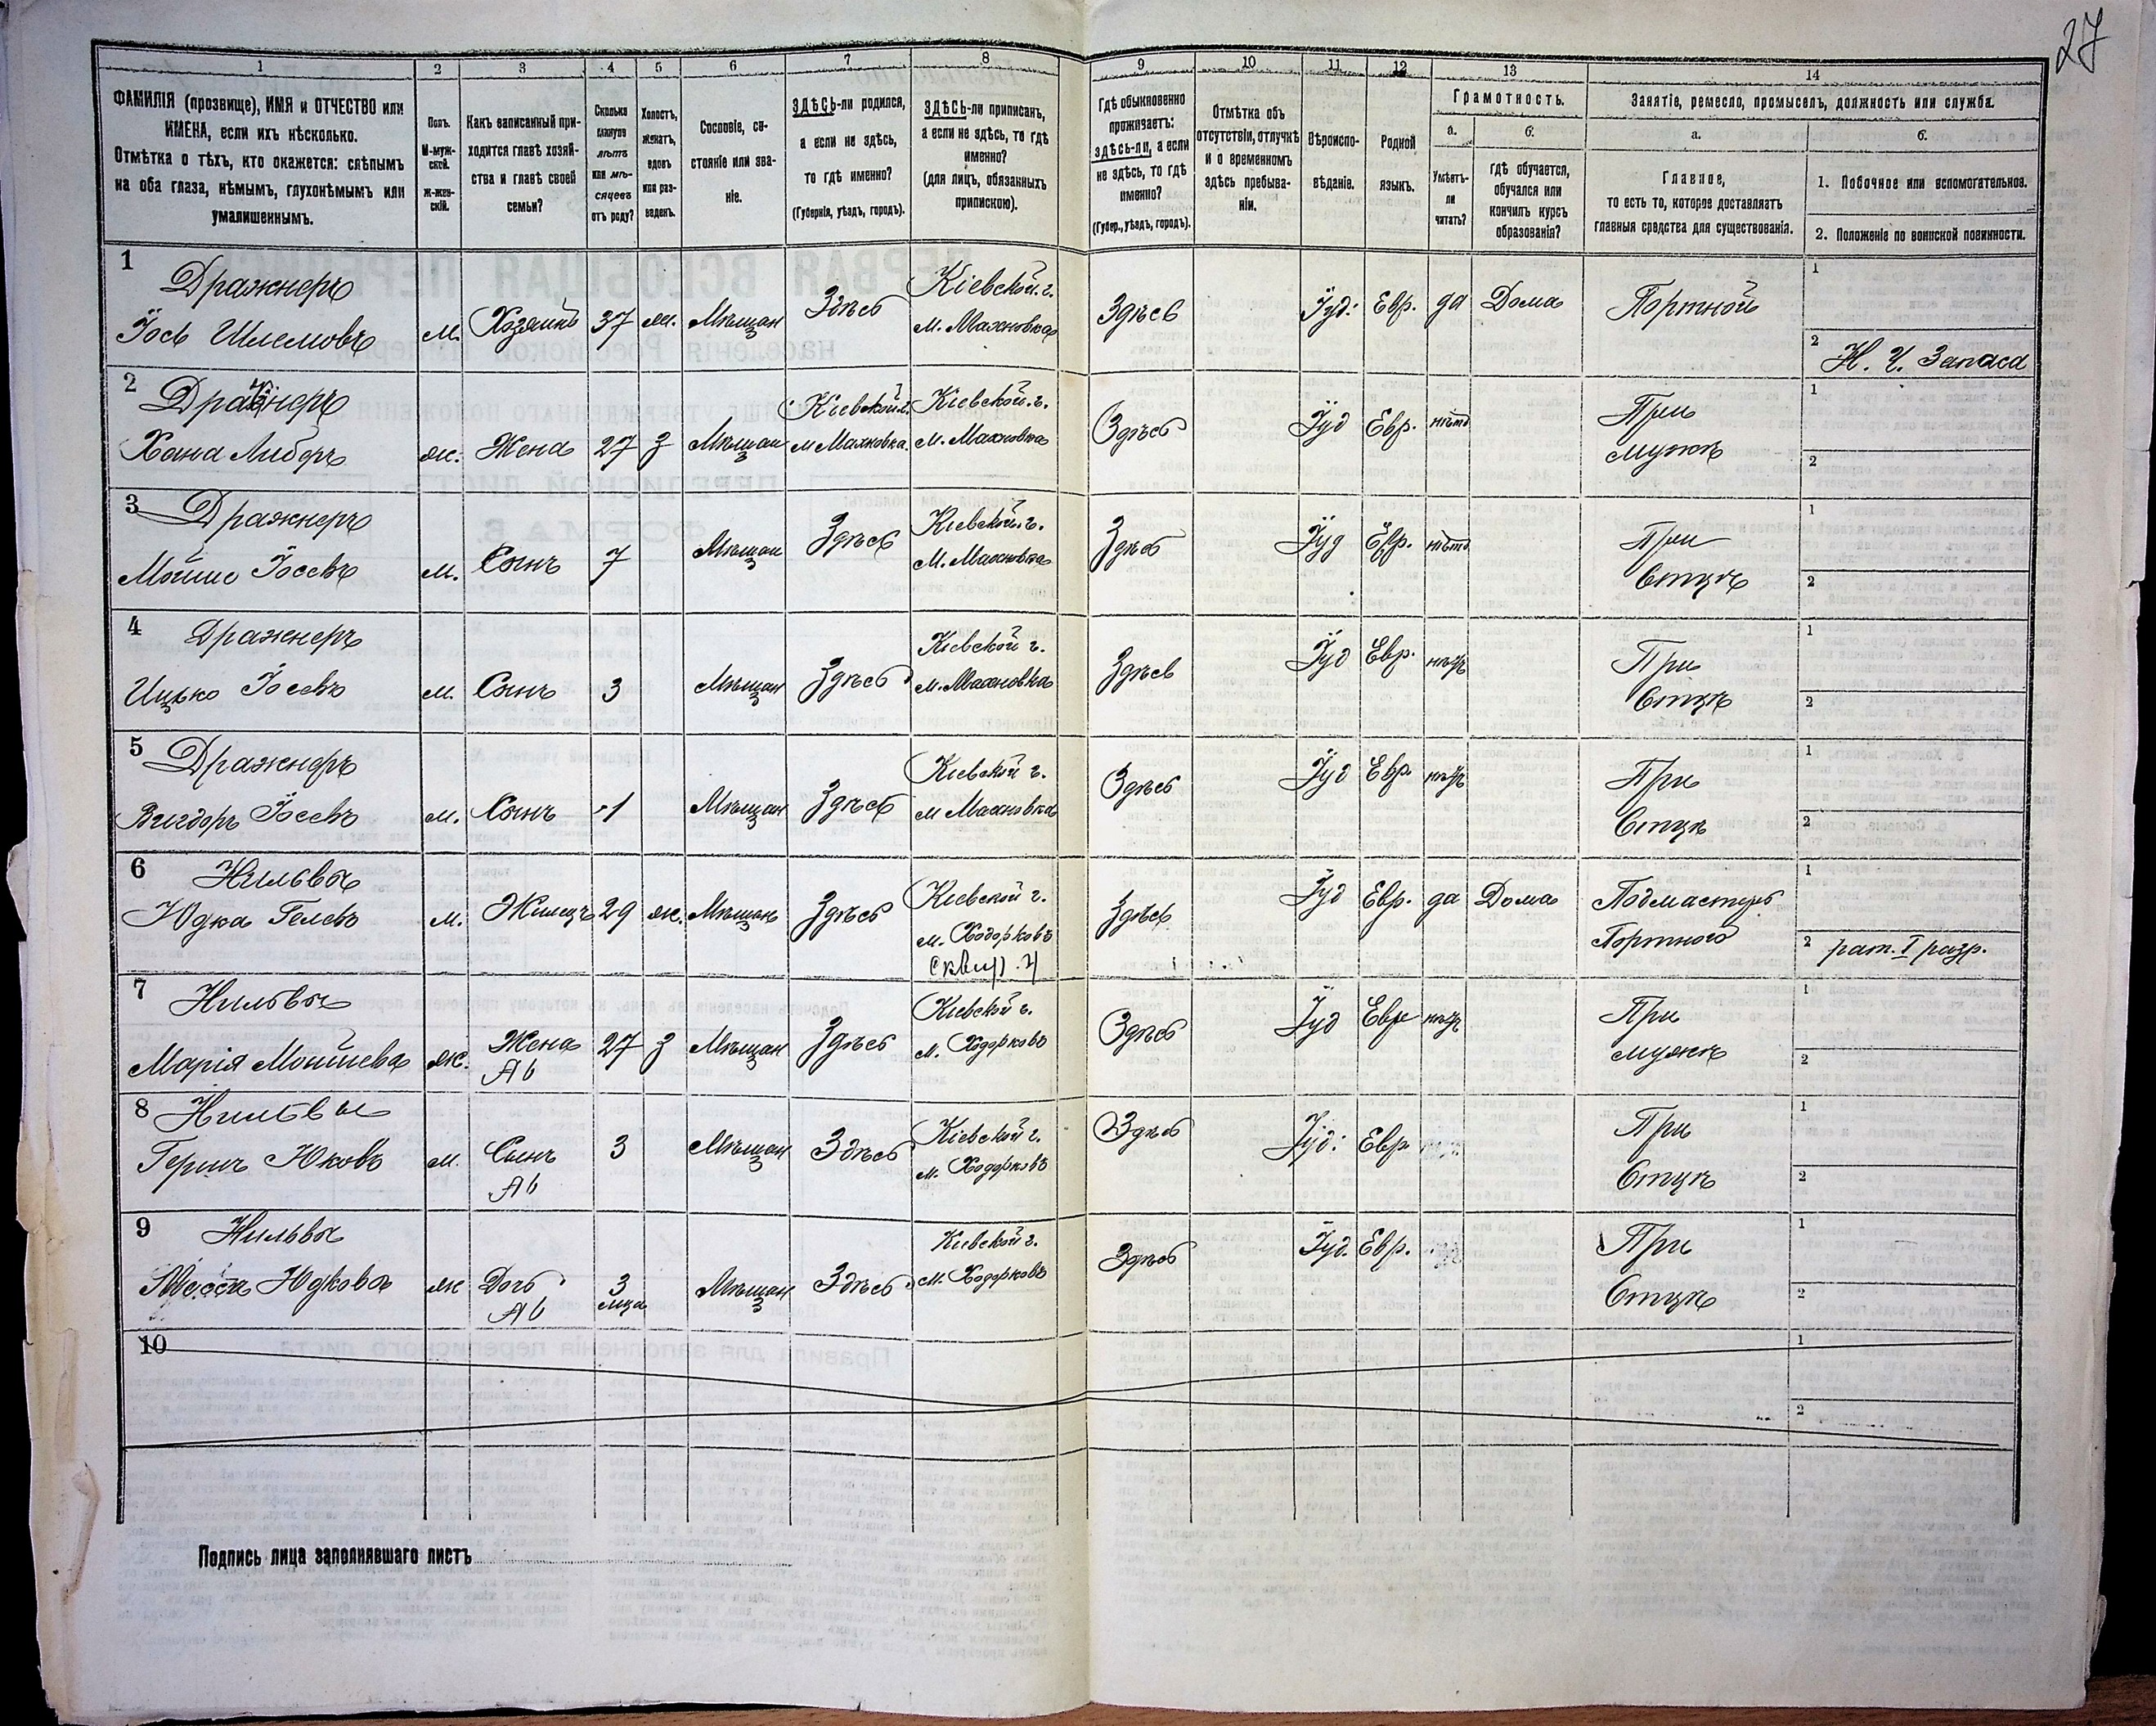 27
1 2 3 4 5 6 7 8 9 10 11 12 13 14
ФАМИЛІЯ (прозвище), ИМЯ и ОТЧЕСТВО или ИМЕНА, если ихъ нѣсколько.
Отмѣтка о тѣхъ, кто окажется: слѣпымъ на оба глаза, нѣмымъ, глухонѣмымъ или умалишеннымъ.
Полъ. М-мужской. Ж-женскій.
Какъ записанный приходится главѣ хозяйства и главѣ своей семьи?
Сколько минуло лѣтъ или мѣсяцевъ отъ роду?
Холостъ, женатъ, вдовъ или разведенъ.
Сословіе, состояніе или званіе.
ЗДѢСЬ-ли родился, а если не здѣсь, то гдѣ именно? (Губернія, уѣздъ, городъ).
ЗДѢСЬ-ли приписанъ, а если не здѣсь, то гдѣ именно? (для лицъ, обязанныхъ припискою).
Гдѣ обыкновенно проживаетъ: здѣсь-ли, а если не здѣсь, то гдѣ именно? (Губер., уѣздъ, городъ).
Отмѣтка объ отсутствіи, отлучкѣ и о временномъ здѣсь пребываніи.
Вѣроисповѣданіе.
Родной языкъ.
Грамотность.
а. Умѣетъ-ли читать?
б. гдѣ обучается, обучался или кончилъ курсъ образованія?
Занятіе, ремесло, промыселъ, должность или служба.
а. Главное, то есть то, которое доставляетъ главныя средства для существованія.
б. 1. Побочное или вспомогательное.
2. Положеніе по воинской повинности.
1 Дражнеръ Іось Шлемовъ м. Хозяинъ 37 ж. Мѣщан Здѣсь Кіевской г. м. Махновка Здѣсь Іуд: Евр. да Дома Портной 1 2 Н. Ч. Запаса
2 Дражнеръ Хана Либеръ ж. Жена 27 з Мѣщан Кіевской г. м Махновка. Кіевской г. м. Махновка Здѣсь Іуд Евр. нѣтъ При мужѣ 1 2
3 Дражнеръ Мойше Іосевъ м. Сынъ 7 Мѣщан Здѣсь Кіевской г. м. Махновка Здѣсь Іуд Евр. нѣтъ При Отцѣ 1 2
4 Дражнеръ Ицько Іосевъ м. Сынъ 3 Мѣщан Здѣсь Кіевской г. м. Махновка Здѣсь Іуд Евр. нѣтъ При Отцѣ 1 2
5 Дражнеръ Вигдоръ Іосевъ м. Сынъ 1 Мѣщан Здѣсь Кіевской г. м Махновка Здѣсь Іуд Евр нѣтъ При Отцѣ 1 2
6 Нильвы Юдка Гелевъ м. Жилецъ 29 ж. Мѣщан Здѣсь Кіевской г. м. Ходорковъ Сквир. у Здѣсь Іуд Евр. да Дома Подмастерь Портного 1 2 рат. I разр.
7 Нильвы Марія Мошшева ж. Жена 27 з Мѣщан Здѣсь Кіевской г. м. Ходорковъ Здѣсь Іуд Евр нѣтъ При мужѣ 1 2
8 Нильвы Гершъ Юковъ м. Сынъ 3 Мѣщан Здѣсь Кіевской г. м. Ходорковъ Здѣсь Іуд: Евр При Отцѣ 1 2
9 Нильвы Юдкова ж Дочь 3 мца Мѣщан Здѣсь Кіевской г. м. Ходорковъ Здѣсь Іуд. Евр. При Отцѣ 1 2
10 1 2
Подпись лица заполнявшаго листъ